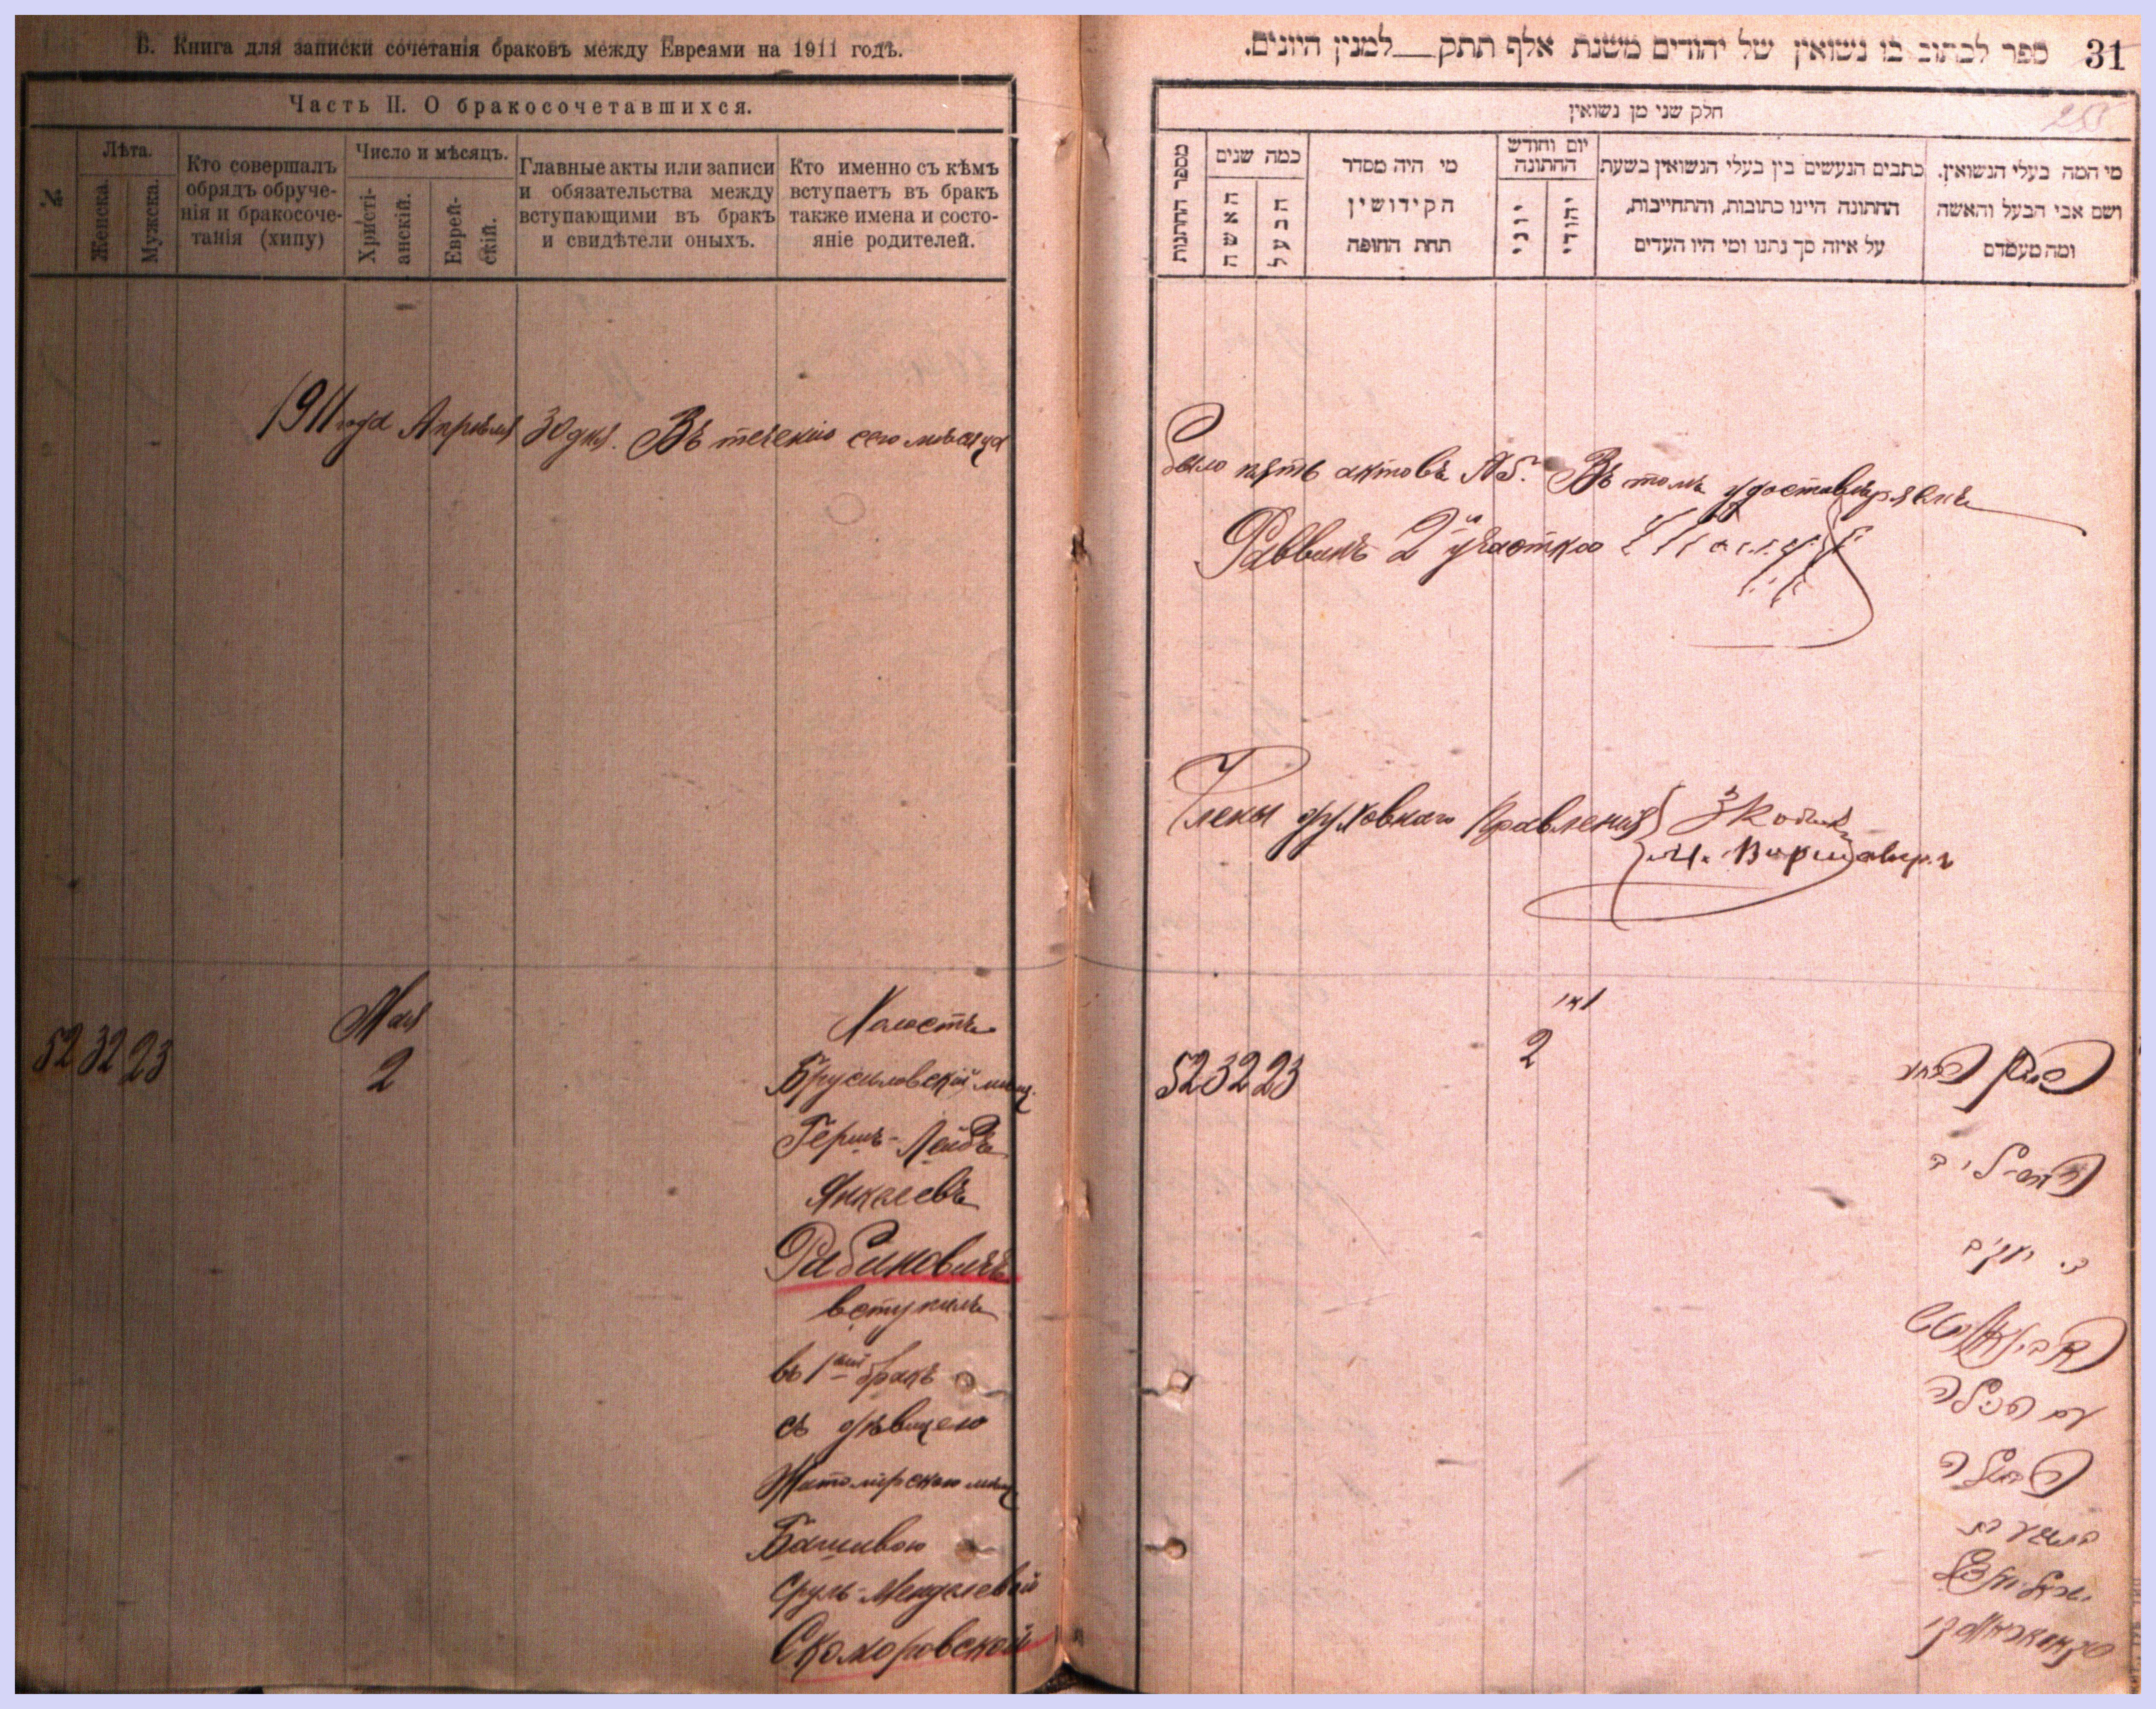 Б. Книга для записки сочетанія браковъ между Евреями на 1911 годъ.
Часть II. О бракосочетавшихся.
№
Лѣта.
Женска.
Мужска.
Кто совершалъ
обрядъ обруче-
нія и бракосоче-
танія (хипу)
Число и мѣсяцъ.
Христі-
анскій.
Еврей-
скій.
Главные акты или записи
и обязательства между
вступающими въ бракъ
и свидѣтели оныхъ.
Кто именно съ кѣмъ
вступаетъ въ бракъ
также имена и состо-
яніе родителей.
1911 года Апрѣля 30 дня. Въ теченіи сего мѣсяца
Мая
52 32 23
2
Холостъ
Брусиловскій мѣщ.
Гершъ-Лейбъ
Янкелевъ
Рабиновичъ
вступилъ
въ 1ый бракъ
съ дѣвицею
Житомірскою мѣщ
Башивою
Сруль-Менделевой
Скоморовской
31
ספר לכתוב בו נשואין של יהודים משנת אלף תתק למנין היונים.
חלק שני מן נשואין
מי המה בעלי הנשואין.
ושם אבי הבעל והאשה
ומה מעמדם
כתבים הנעשים בין בעלי הנשואין בשעת
החתונה היינו כתובות, והתחייבות,
על איזה סך נתנו ומי היו העדים
יום וחודש
החתונה
יהודי
יוני
מי היה מסדר
הקידושין
תחת החופה
כמה שנים
הבעל
האשה
מספר החתונות
было пять актовъ №5. Въ томъ удостовѣряемъ
Раввинъ 2й участка
Члены духовнаго Правленія
מאי
52 32 23
2
ב. יעקב
ראבינאוויטש
עם הבתולה